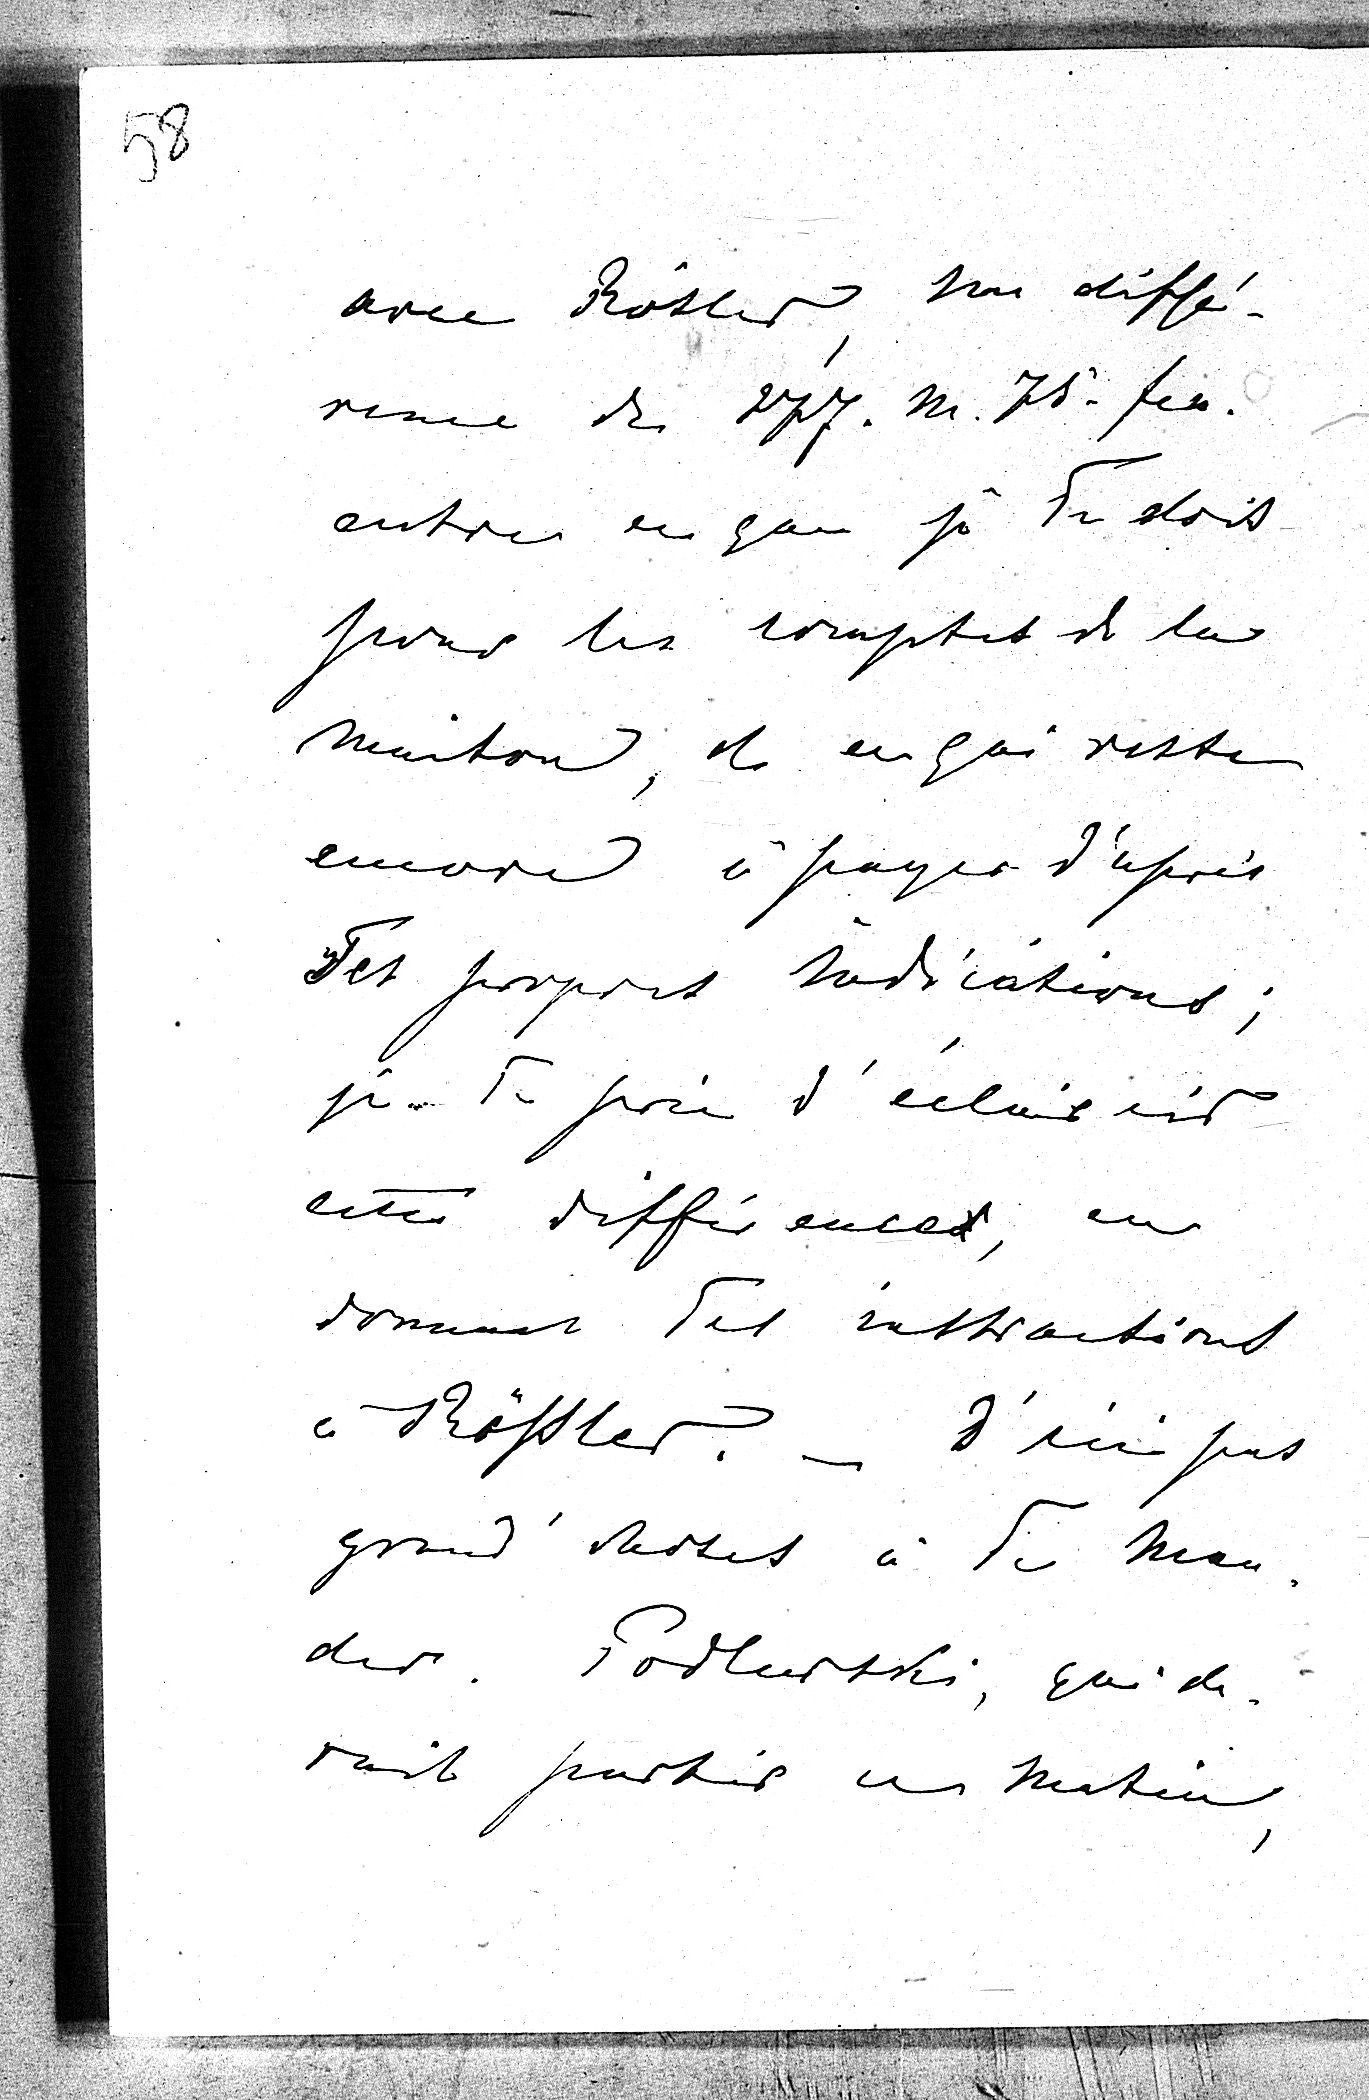 58
avec Rösler, une diffé-
rence de 277. M. 75. fen.
entre ce que je Te dois
pour les comptes de la
maison, et ce qui reste
encore à payer d'après
Tes propres indications;
je Te prie d'éclaircir
cette différence, en
donnant Tes instructions
à Rößler. — D'ici pas
grand' choses à Te man-
der. Podlewski, qui de-
vait partir ce matin,